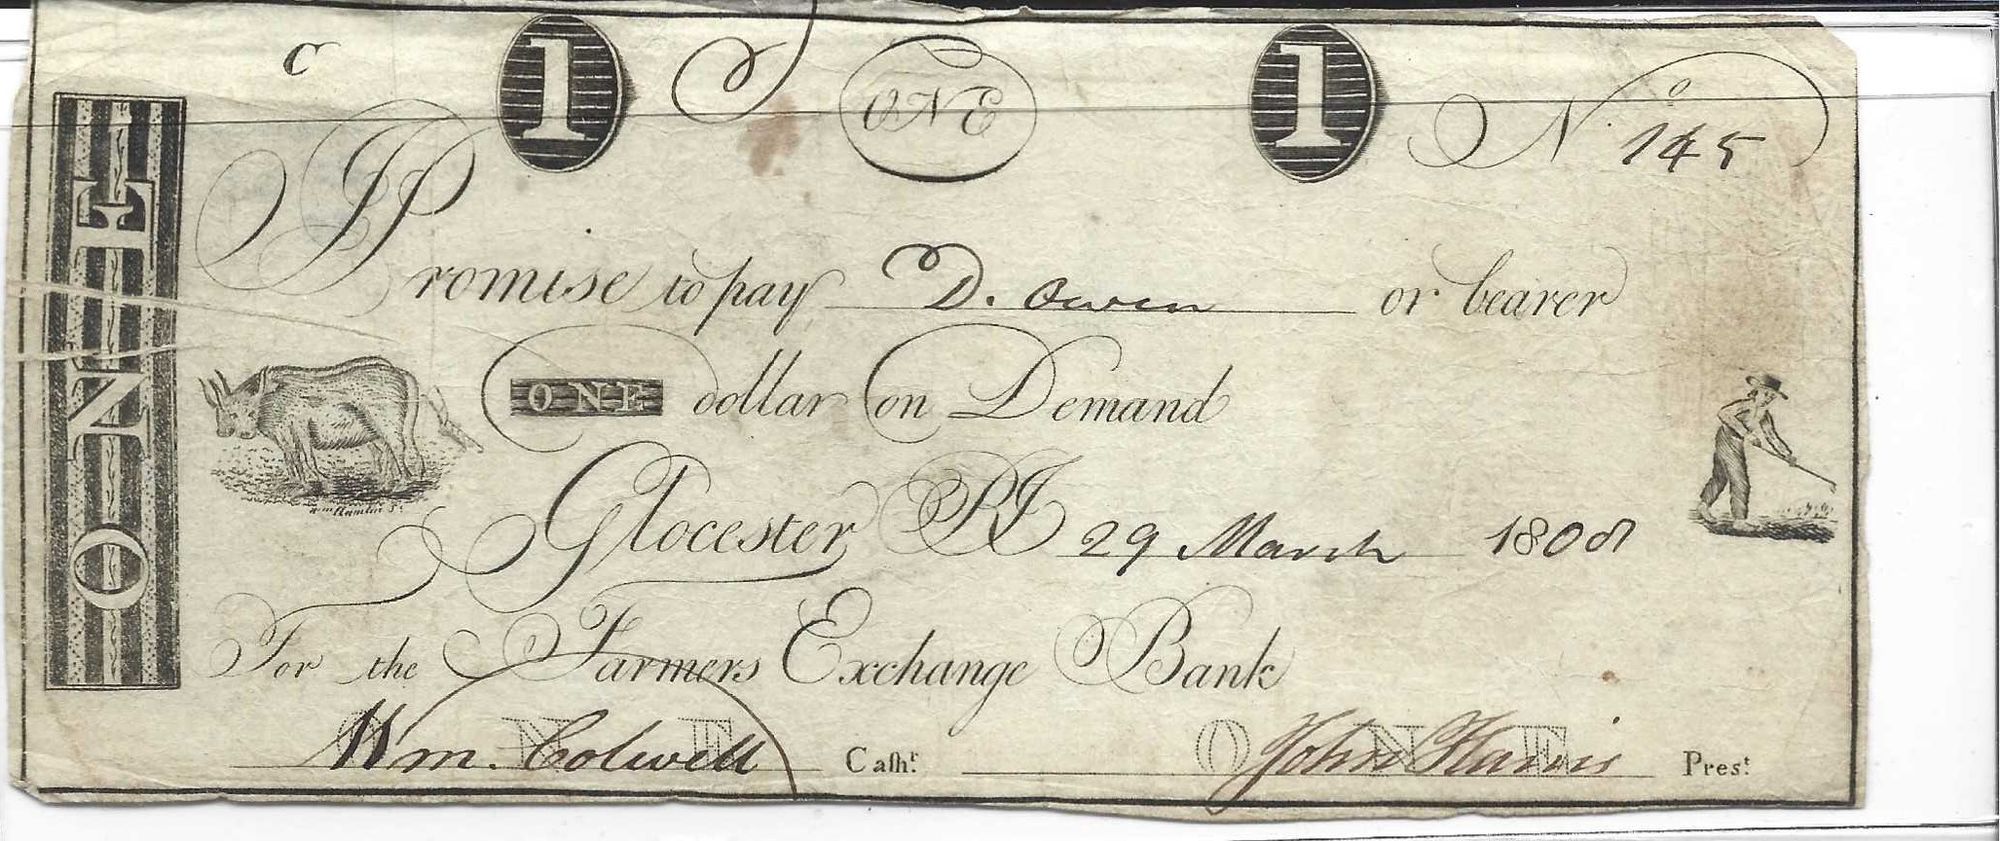 C 1 ONE 1 No 145
ONE
I Promise to pay D. Owen or bearer
ONE dollar on Demand
Glocester RI 29 March 1808
Wm Hamlin Sc
For the Farmers Exchange Bank
ONE ONE
Wm. Colwell Cashr. John Harris Prest